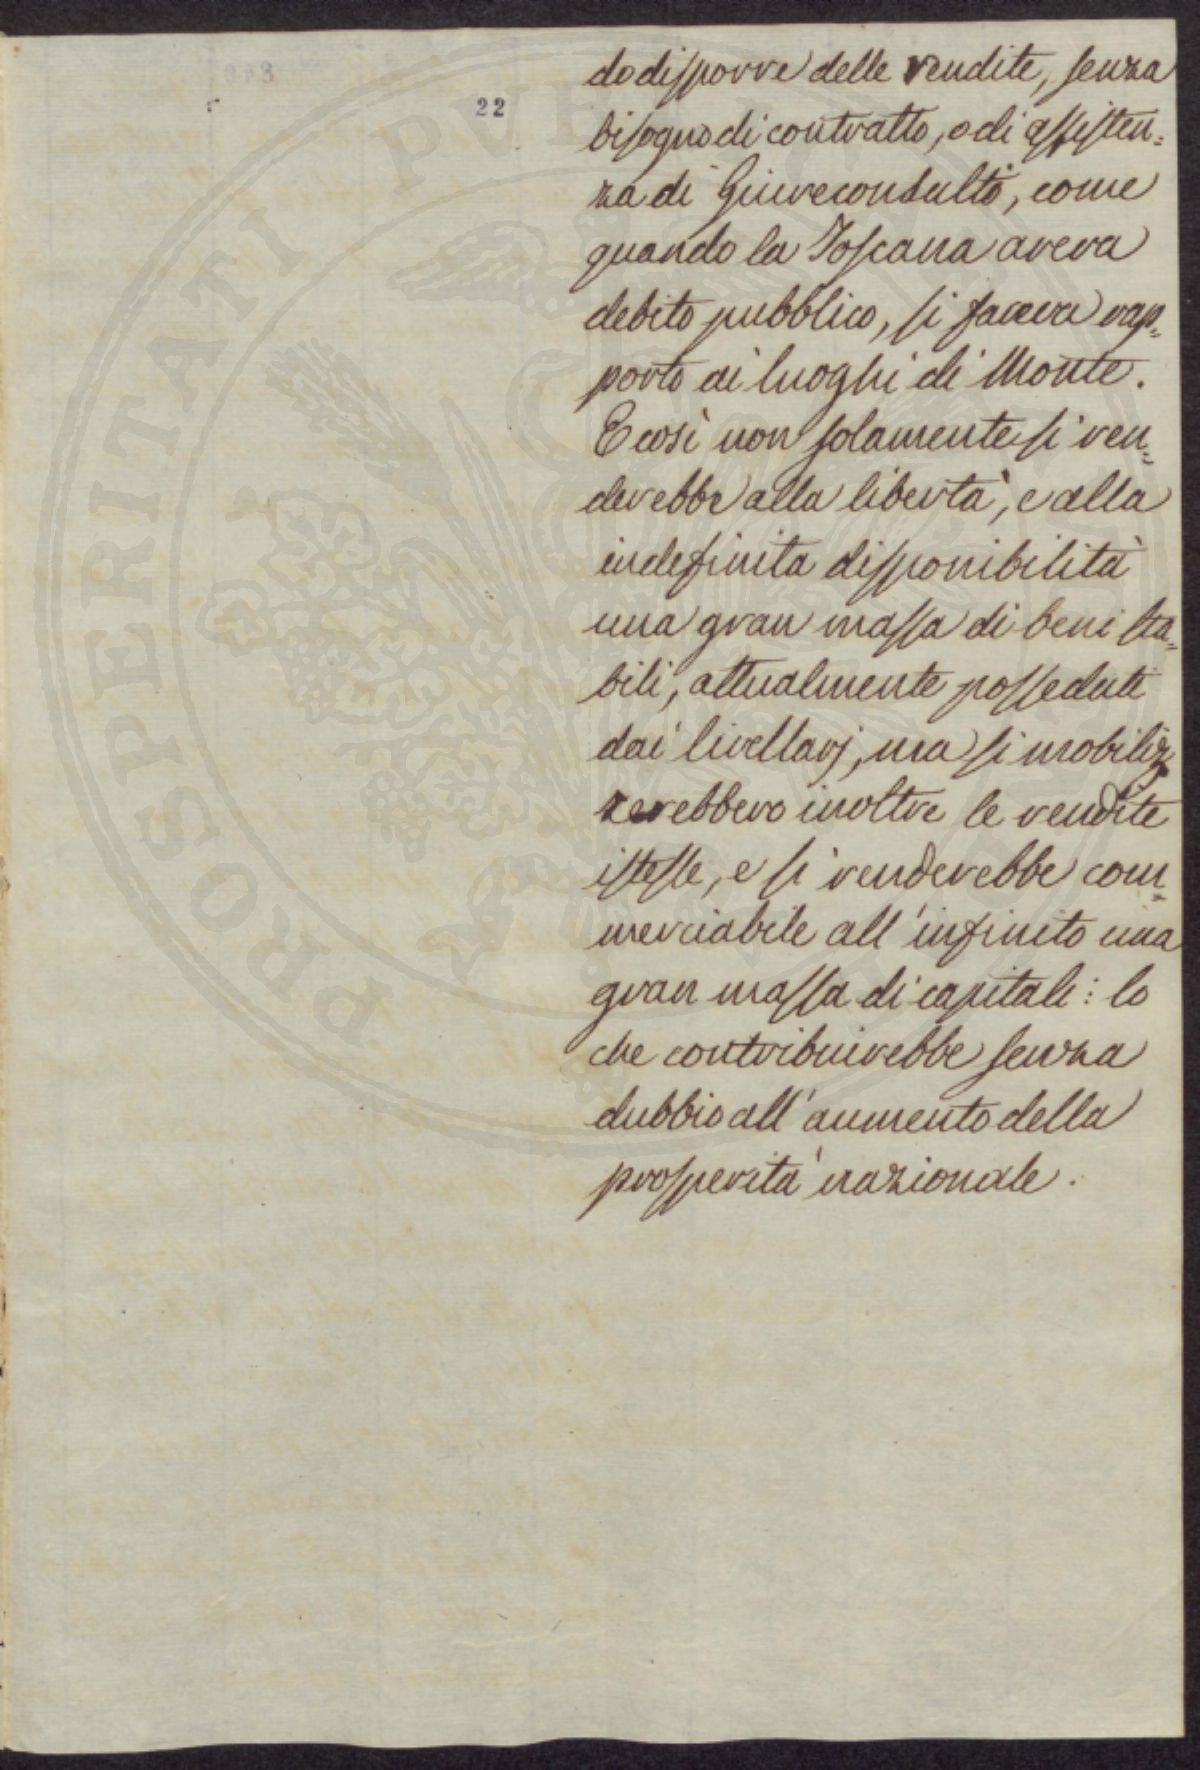 22
do disporre delle rendite, senza
bisogno di contratto, o di assisten=
za di Giureconsulto, come
quando la Toscana aveva
debito pubblico, si faceva rap=
porto ai luoghi di Monte.
E così non solamente si ren=
derebbe alla libertà, e alla
indefinita disponibilità
una gran massa di beni sta=
bili, attualmente posseduti
dai livellarj, ma si mobiliz=
zerebbero inoltre le rendite
istesse, e si renderebbe com=
merciabile all'infinito una
gran massa di capitali: lo
che contribuirebbe senza
dubbio all'aumento della
prosperità nazionale.
PROSPERITATI